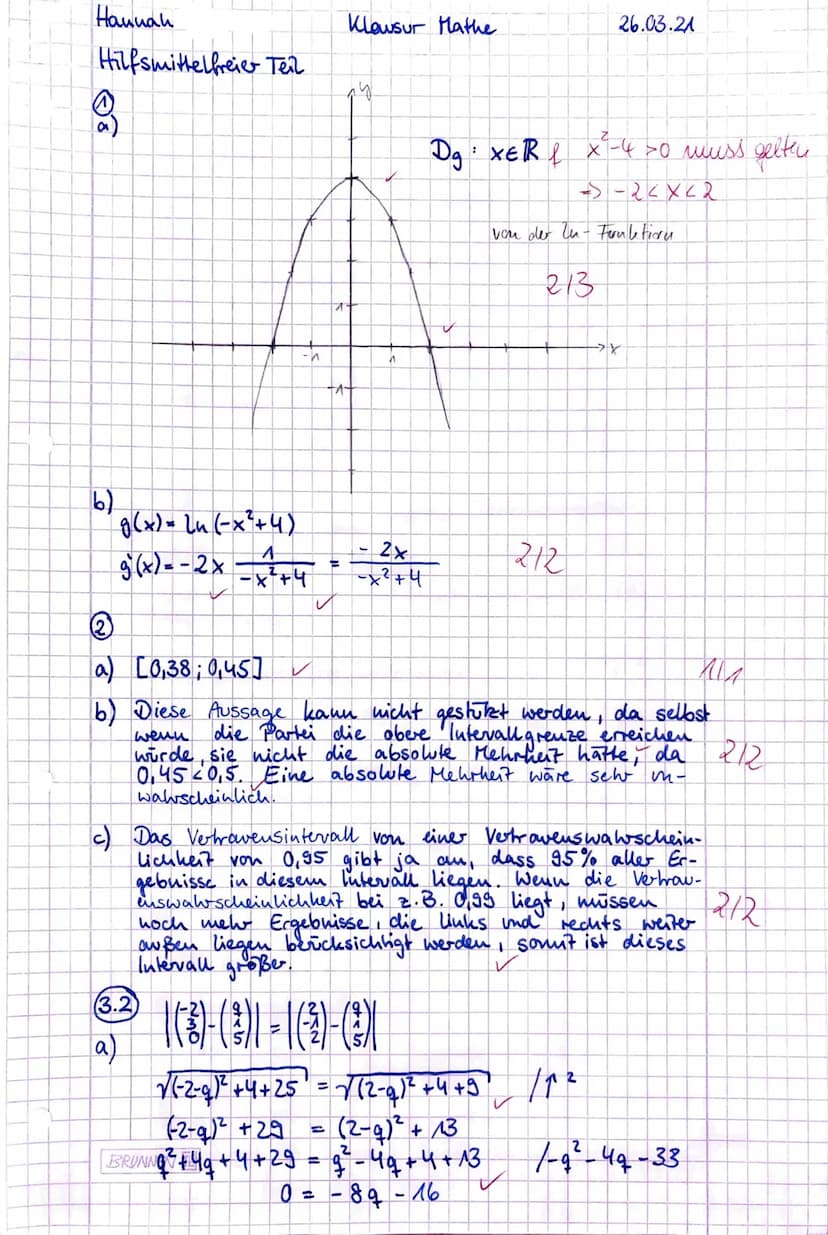 Hannah Klausur Mathe 26.03.21
Hilfsmittelfreier Teil
①
a)
y
Dg: x∈ℝ f x²-4 >0 muss gelten
=> -2 < x < 2
von der ln-Funktion
2/3
1
-1 1 x
-1
b)
g(x) = ln(-x²+4)
g'(x) = -2x 1/(-x²+4) = -2x/(-x²+4) 2/2
②
a) [0,38 ; 0,45] ✓ 1/1
b) Diese Aussage kann nicht gestützt werden, da selbst
wenn die Partei die obere Intervallgrenze erreichen
würde, sie nicht die absolute Mehrheit hätte, da 2/2
0,45 < 0,5. Eine absolute Mehrheit wäre sehr un-
wahrscheinlich.
c) Das Vertrauensintervall von einer Vertrauenswahrschein-
lichkeit von 0,95 gibt ja an, dass 95% aller Er-
gebnisse in diesem Intervall liegen. Wenn die Vertrau-
enswahrscheinlichkeit bei z.B. 0,99 liegt, müssen 2/2
noch mehr Ergebnisse, die links und rechts weiter
außen liegen berücksichtigt werden, somit ist dieses
Intervall größer. ✓
③.2
a) |(-2 3 0) - (q 1 5)| = |(2 -1 2) - (q 1 5)|
√((-2-q)² +4+25) = √((2-q)² +4+9) ✓ /↑²
(-2-q)² + 29 = (2-q)² + 13
q² + 4q + 4 + 29 = q² - 4q + 4 + 13 /-q² - 4q - 33
0 = -8q - 16 ✓